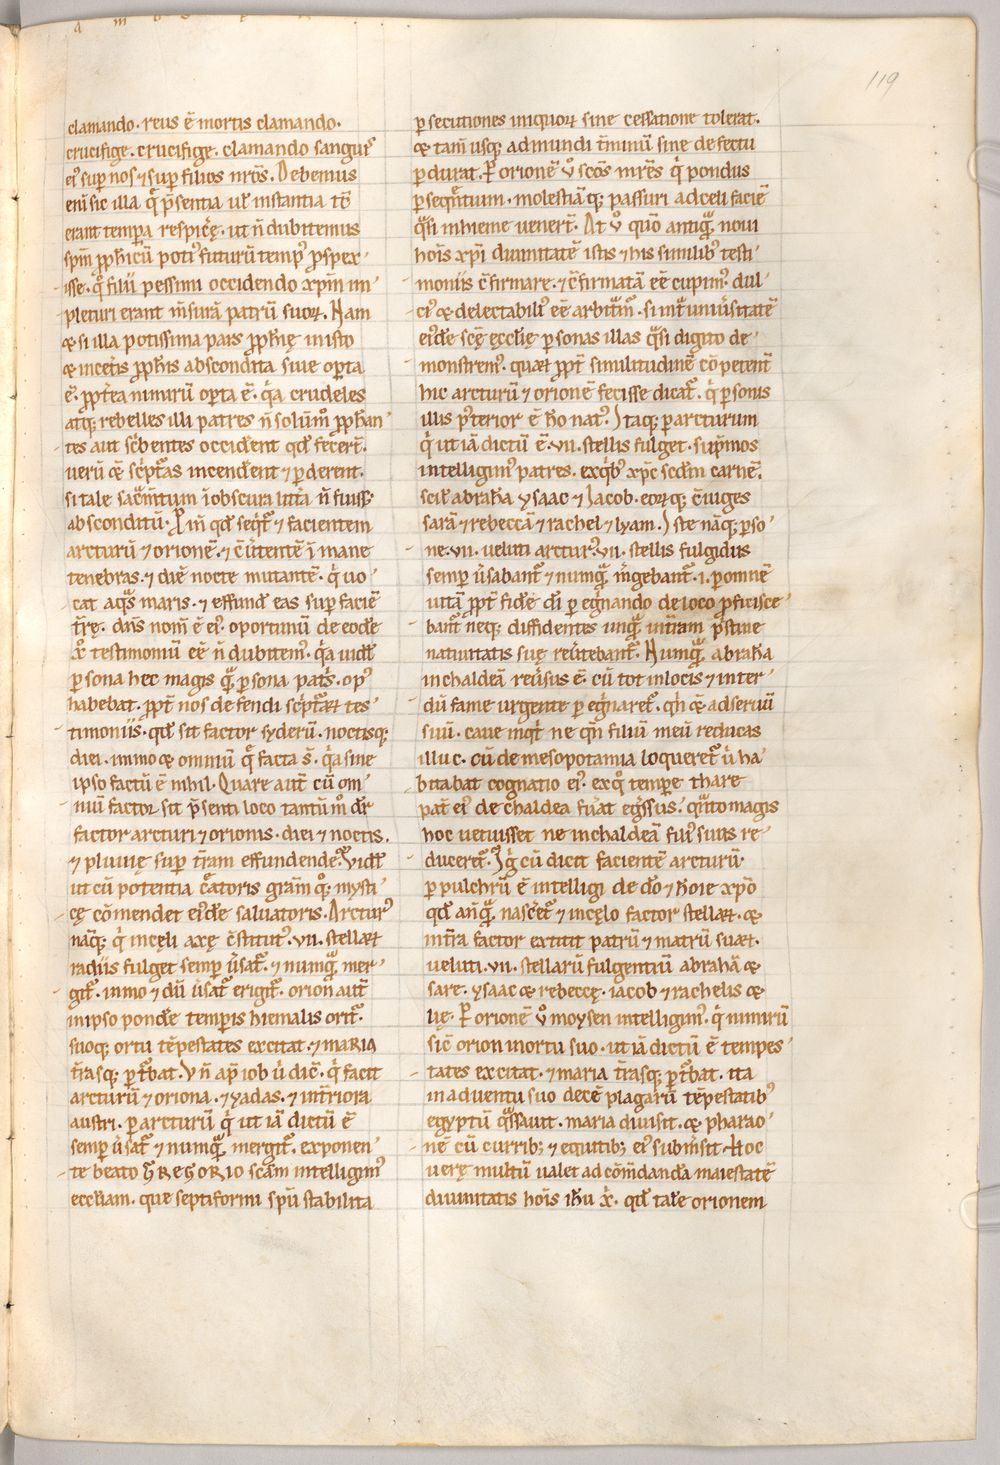 119
clamando. reus ē mortis clamando.
crucifige. crucifige. clamando sanguis
ei᷒ sup nos ⁊ sup filios nr̄os. Debemus
eni᷒ sic illa q̄ p̄sentia ul̓ instantia t̄c
erant tempa respicē. ut n̄ dubitemus
spm̄ pph̓icū poti᷒ futurū temp᷒ pspex
isse. qđ filii pessimi occidendo xp̄m im
pleturi erant m̄surā patrū suoꝝ. Nam
⁊ si illa potissima pars pph̓ię in isto
⁊ incet̓is pph̓is abscondita siue opta
ē. ppt̓ea nimirū opta ē. q̓a crudeles
atq; rebelles illi patres n̄ solūm̊ pph̓an
tes aut sc̓bentes occid̓ent qđ fecer̄t.
uerū ⁊ sc̓pt̓as incend̓ent ⁊ pderent.
si tale sac̓m̄tum ī obscura litt̓a n̄ fuiss&
absconditū. P in̄ qđ seq̓t᷒ ⁊ facientem
arcturū ⁊ orionē. ⁊ c̄ūtentē ī mane
tenebras. ⁊ diē nocte mutantē. q̓ uo
cat aq̓s maris. ⁊ effund̓ eas sup faciē
t̓rę. dn̄s nom̄ ē ei᷒. oportunū de eod̓e
xp̄o testimoniū eē n̄ dubitem᷒. q̓a uid̓l
psona hec magis q̄ psona pat̓s. op᷒
habebat. ppt̓ nos defendi sc̓pt̓aꝝ tes
timoniis. qđ sit factor syderū. noctisq;
diei. immo ⁊ omniū q̄ facta s̄. q̓a sine
ipso factū ē nihil. Quare aut̄ cū om
niū factor sit p̄senti loco tantū m̊ dr̄
factor arcturi ⁊ orionis. diei ⁊ noctis.
⁊ pluuię sup t̓ram effundendę. Vid̓l
ut cū potentia c̓atoris grām q̊; mysti
cę cōmendet ei᷒d̓e saluatoris. Arctur᷒
nāq; q̓ in cęli axę c̄stitut᷒. vii. stellaꝝ
radiis fulget semp ūsat᷒. ⁊ numq̄ mer
git᷒. immo ⁊ dū ūsat᷒ erigit᷒. orion aut̄
in ipso pond̓e tempis hiemalis orit᷒.
suoq; ortu tēpestates excitat. ⁊ maria
t̓rasq; pt̓bat. Vn̄ ap̄ iob ū dic̄. q̓ facit
arcturū ⁊ oriona. ⁊ yadas. ⁊ int̓iora
austri. p arcturū q̓ ut iā dictū ē
semp ūsat᷒ ⁊ numq̄ mergit᷒. exponen
te beato GREGORIO scām intelligim᷒
eccliam. que septiformi sp̄u stabilita
psecutiones iniquoꝝ sine cessatione tolerat.
⁊ tam̄ usq; ad mundi t̓minū sine defectu
pdurat. P orionē ů scōs mr̄es q̓ pondus
pseq̄ntium. molestiāq; passuri ad celi faciē
q̓si in hieme uener̄t. At ů quō antiq̄ noui
hoīs xp̄i diuinitatē istis ⁊ his similib᷒ testi
moniis c̄firmare. ⁊ c̄firmatā eē cupim᷒. dul
ci᷒ ⁊ delectabili᷒ eē arbit̓m᷒. si int̓ uniu̓sitatē
ei᷒d̓e scę ęcclię psonas illas q̓si digito de
monstrem᷒. quaꝝ ppt̓ similitudinē cōpetent̓
hic arcturū ⁊ orionē fecisse dicat᷒. q̓ psonis
illis pt̓erior ē ho nat᷒. Itaq; p arcturum
q̓ ut iā dictū ē. vii. stellis fulget. sup̓mos
intelligim᷒ patres. ex q̓b᷒ xp̄c scd̓m carnē.
scil̓ abrahā ysaac ⁊ iacob. eoꝝq; c̄iuges
sarā ⁊ rebeccā ⁊ rachel ⁊ lyam. Iste nāq; pso
nę. vii. ueluti arctur᷒. vii. stellis fulgidus
semp ūsabant᷒ ⁊ numq̄ m̓gebant᷒. i. p omnē
uitā ppt̓ fid̓e di̅ p eg̓nando de loco pficisce
bant᷒ neq; diffidentes unq̄ in t̓ram p̓stinę
natiuitatis suę reu̓tebant᷒. Numq̄ abrahā
in chaldeā reu̓sus ē. cū tot in locis ⁊ inter
dū fame urgente p eg̓naret᷒. q̓n ⁊ ad seruū
suū. caue inqt̓ ne q̄n filiū meū reducas
illuc. cū de mesopotamia loqueret᷒ ů ha
bitabat cognatio ei᷒. ex q̊ tempe thare
pat̓ ei᷒ de chaldea fu̓at eg̓ssus. q̓nto magis
hoc uetuisset ne in chaldeā fili᷒ suus re
duceret᷒. Ig̓ cū dicit facientē arcturū.
p pulchrū ē intelligi de dō ⁊ hoīe xp̄o
qđ anq̄ nascet᷒ ⁊ in cęlo factor stellaꝝ. ⁊
in t̓ra factor extitit patrū ⁊ matrū suaꝝ.
ueluti. vii. stellarū fulgentiū abrahā ⁊
sare. ysaac ⁊ rebeccę. iacob ⁊ rachelis ⁊
lię. P orionē ů moysen intelligim᷒. q̓ nimirū
sic̄ orion in ortu suo. ut iā dictū ē tempes
tates excitat. ⁊ maria t̓rasq; pt̓bat. ita
in aduentu suo decē plagarū tēpestatib᷒
egyptū q̓ssauit. maria diuisit. ⁊ pharao
nē cū currib; ⁊ equitib; ei᷒ subm̓sit. Hoc
uerę multū ualet ad cōm̄dandā maiestatē
diuinitatis hoīs ih̄u x̄. qđ tale orionem